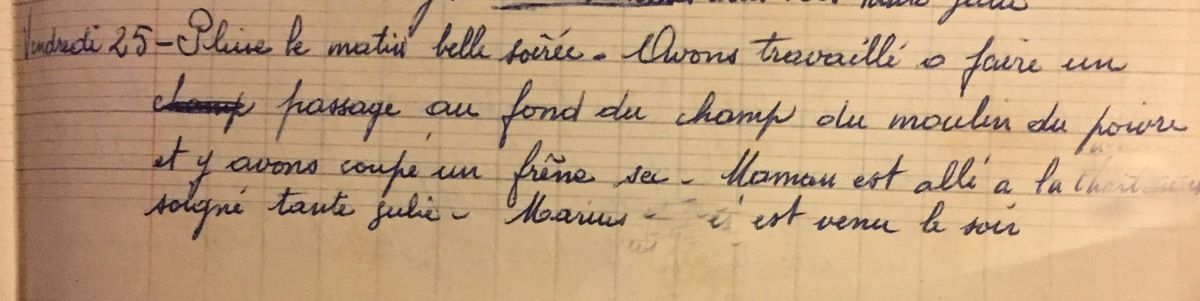 Vendredi 25 - Pluie le matin belle soirée - Avons travaillé a faire un
champ passage au fond du champ du moulin du poivre
et y avons coupé un frêne sec - Maman est allé a la
soigné tante julie - Marius est venu le soir